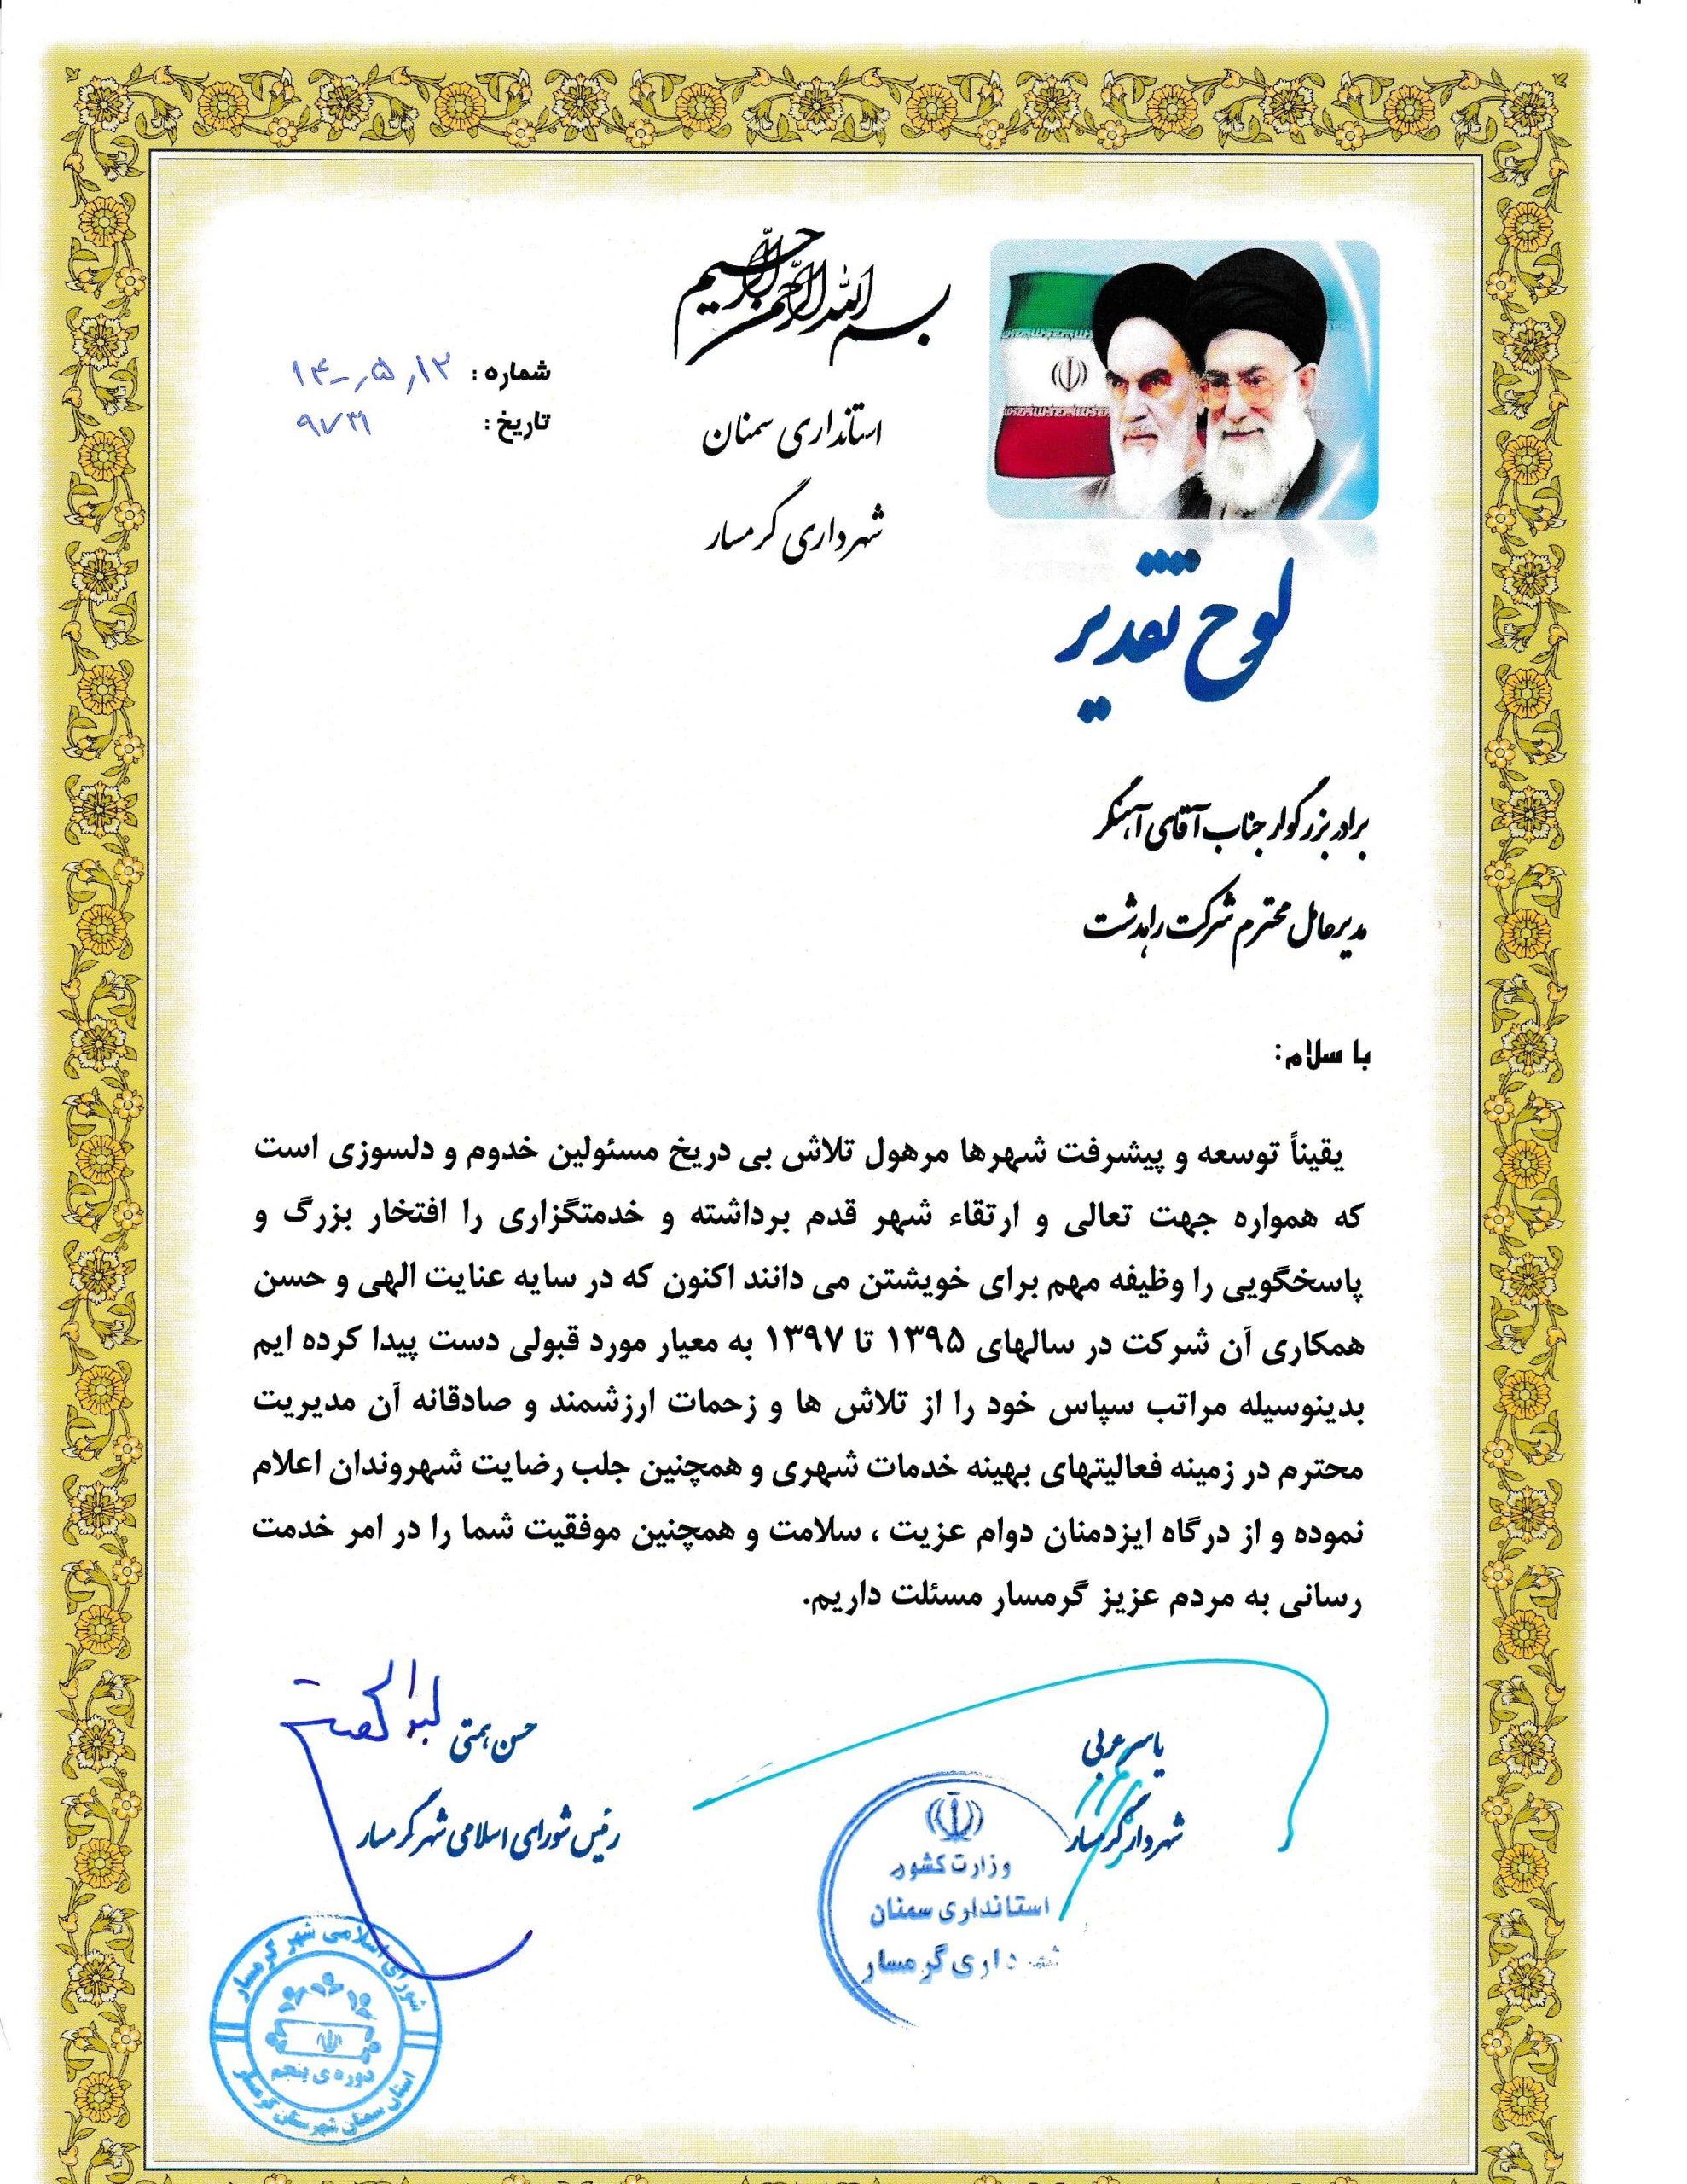 بسم الله الرحمن الرحیم
استانداری سمنان
شهرداری گرمسار
شماره :
تاریخ:
لوح تقدیر
برادر بزرگوار جناب آقای آهنگر
مدیرعامل محترم شرکت راهدشت
با سلام:
یقیناً توسعه و پیشرفت شهرها مرهول تلاش بی دریخ مسئولین خدوم و دلسوزی است
که همواره جهت تعالی و ارتقاء شهر قدم برداشته و خدمتگزاری را افتخار بزرگ و
پاسخگویی را وظیفه مهم برای خویشتن می دانند اکنون که در سایه عنایت الهی و حسن
همکاری آن شرکت در سالهای ۱۳۹۵ تا ۱۳۹۷ به معیار مورد قبولی دست پیدا کرده ایم
بدینوسیله مراتب سپاس خود را از تلاش ها و زحمات ارزشمند و صادقانه آن مدیریت
محترم در زمینه فعالیتهای بهینه خدمات شهری و همچنین جلب رضایت شهروندان اعلام
نموده و از درگاه ایزدمنان دوام عزیت ، سلامت و همچنین موفقیت شما را در امر خدمت
رسانی به مردم عزیز گرمسار مسئلت داریم.
یاسر عربی
شهردار گرمسار
حسن همتی
رئیس شورای اسلامی شهر گرمسار
وزارت کشور
استانداری سمنان
شهرداری گرمسار
شورای اسلامی شهر گرمسار
دوره ی پنجم
استان سمنان شهرستان گرمسار